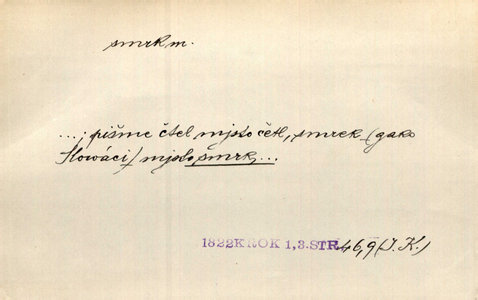 smrk m.
...; pišme čtel mjsto četl, smrek (gako
Slowáci) mjsto smrk, ...
1822KROK 1,3.STR. 46,9 (J. K.)